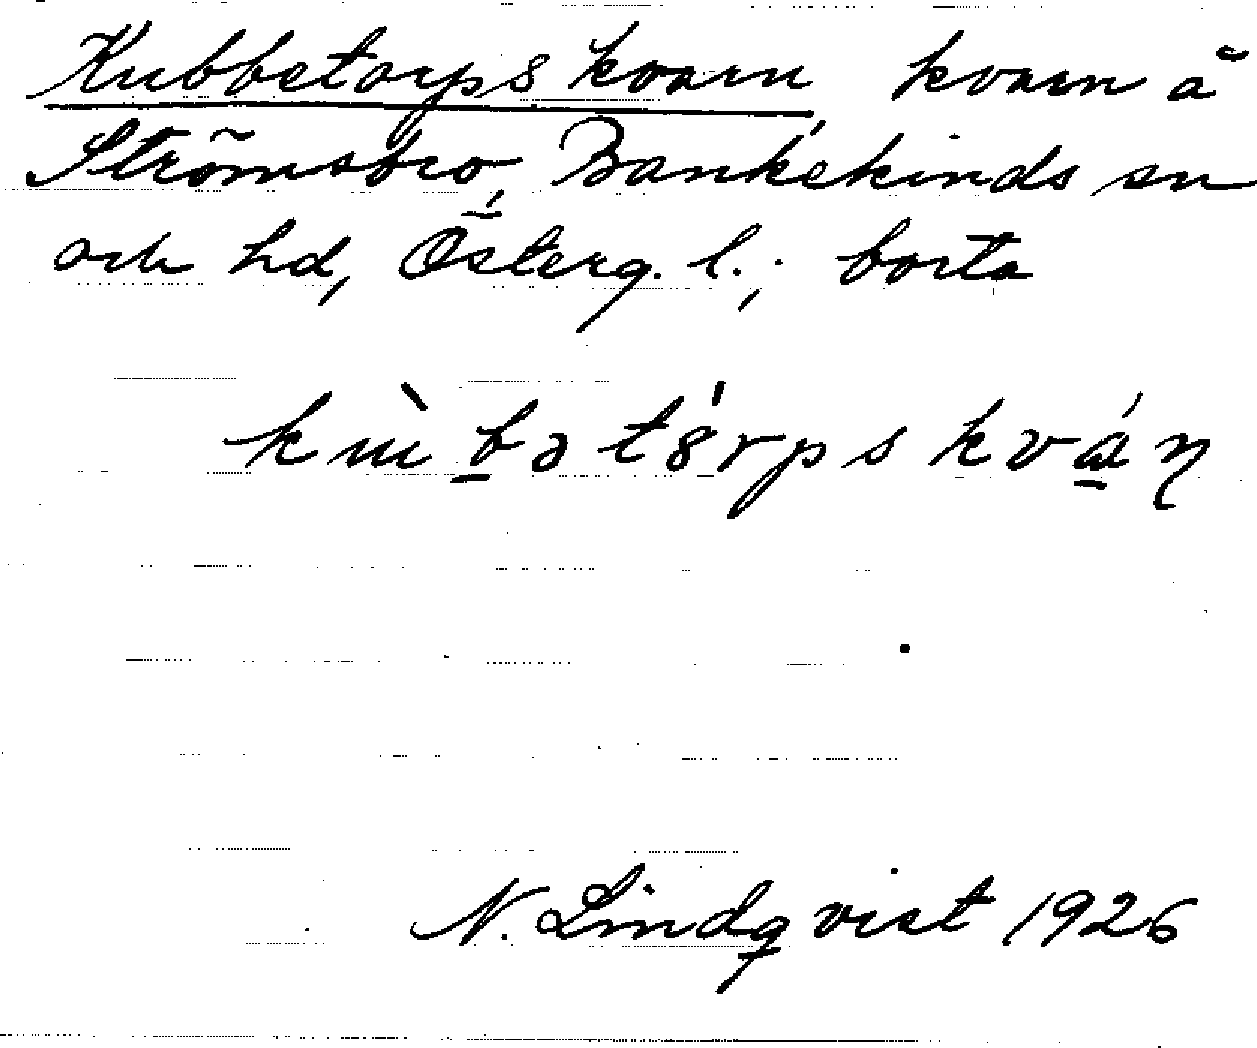 Kubbetorps kvarn, kvarn å
Strömsbro, Bankekinds sn
och hd, Österg. l.; borta
N. Lindqvist 1926